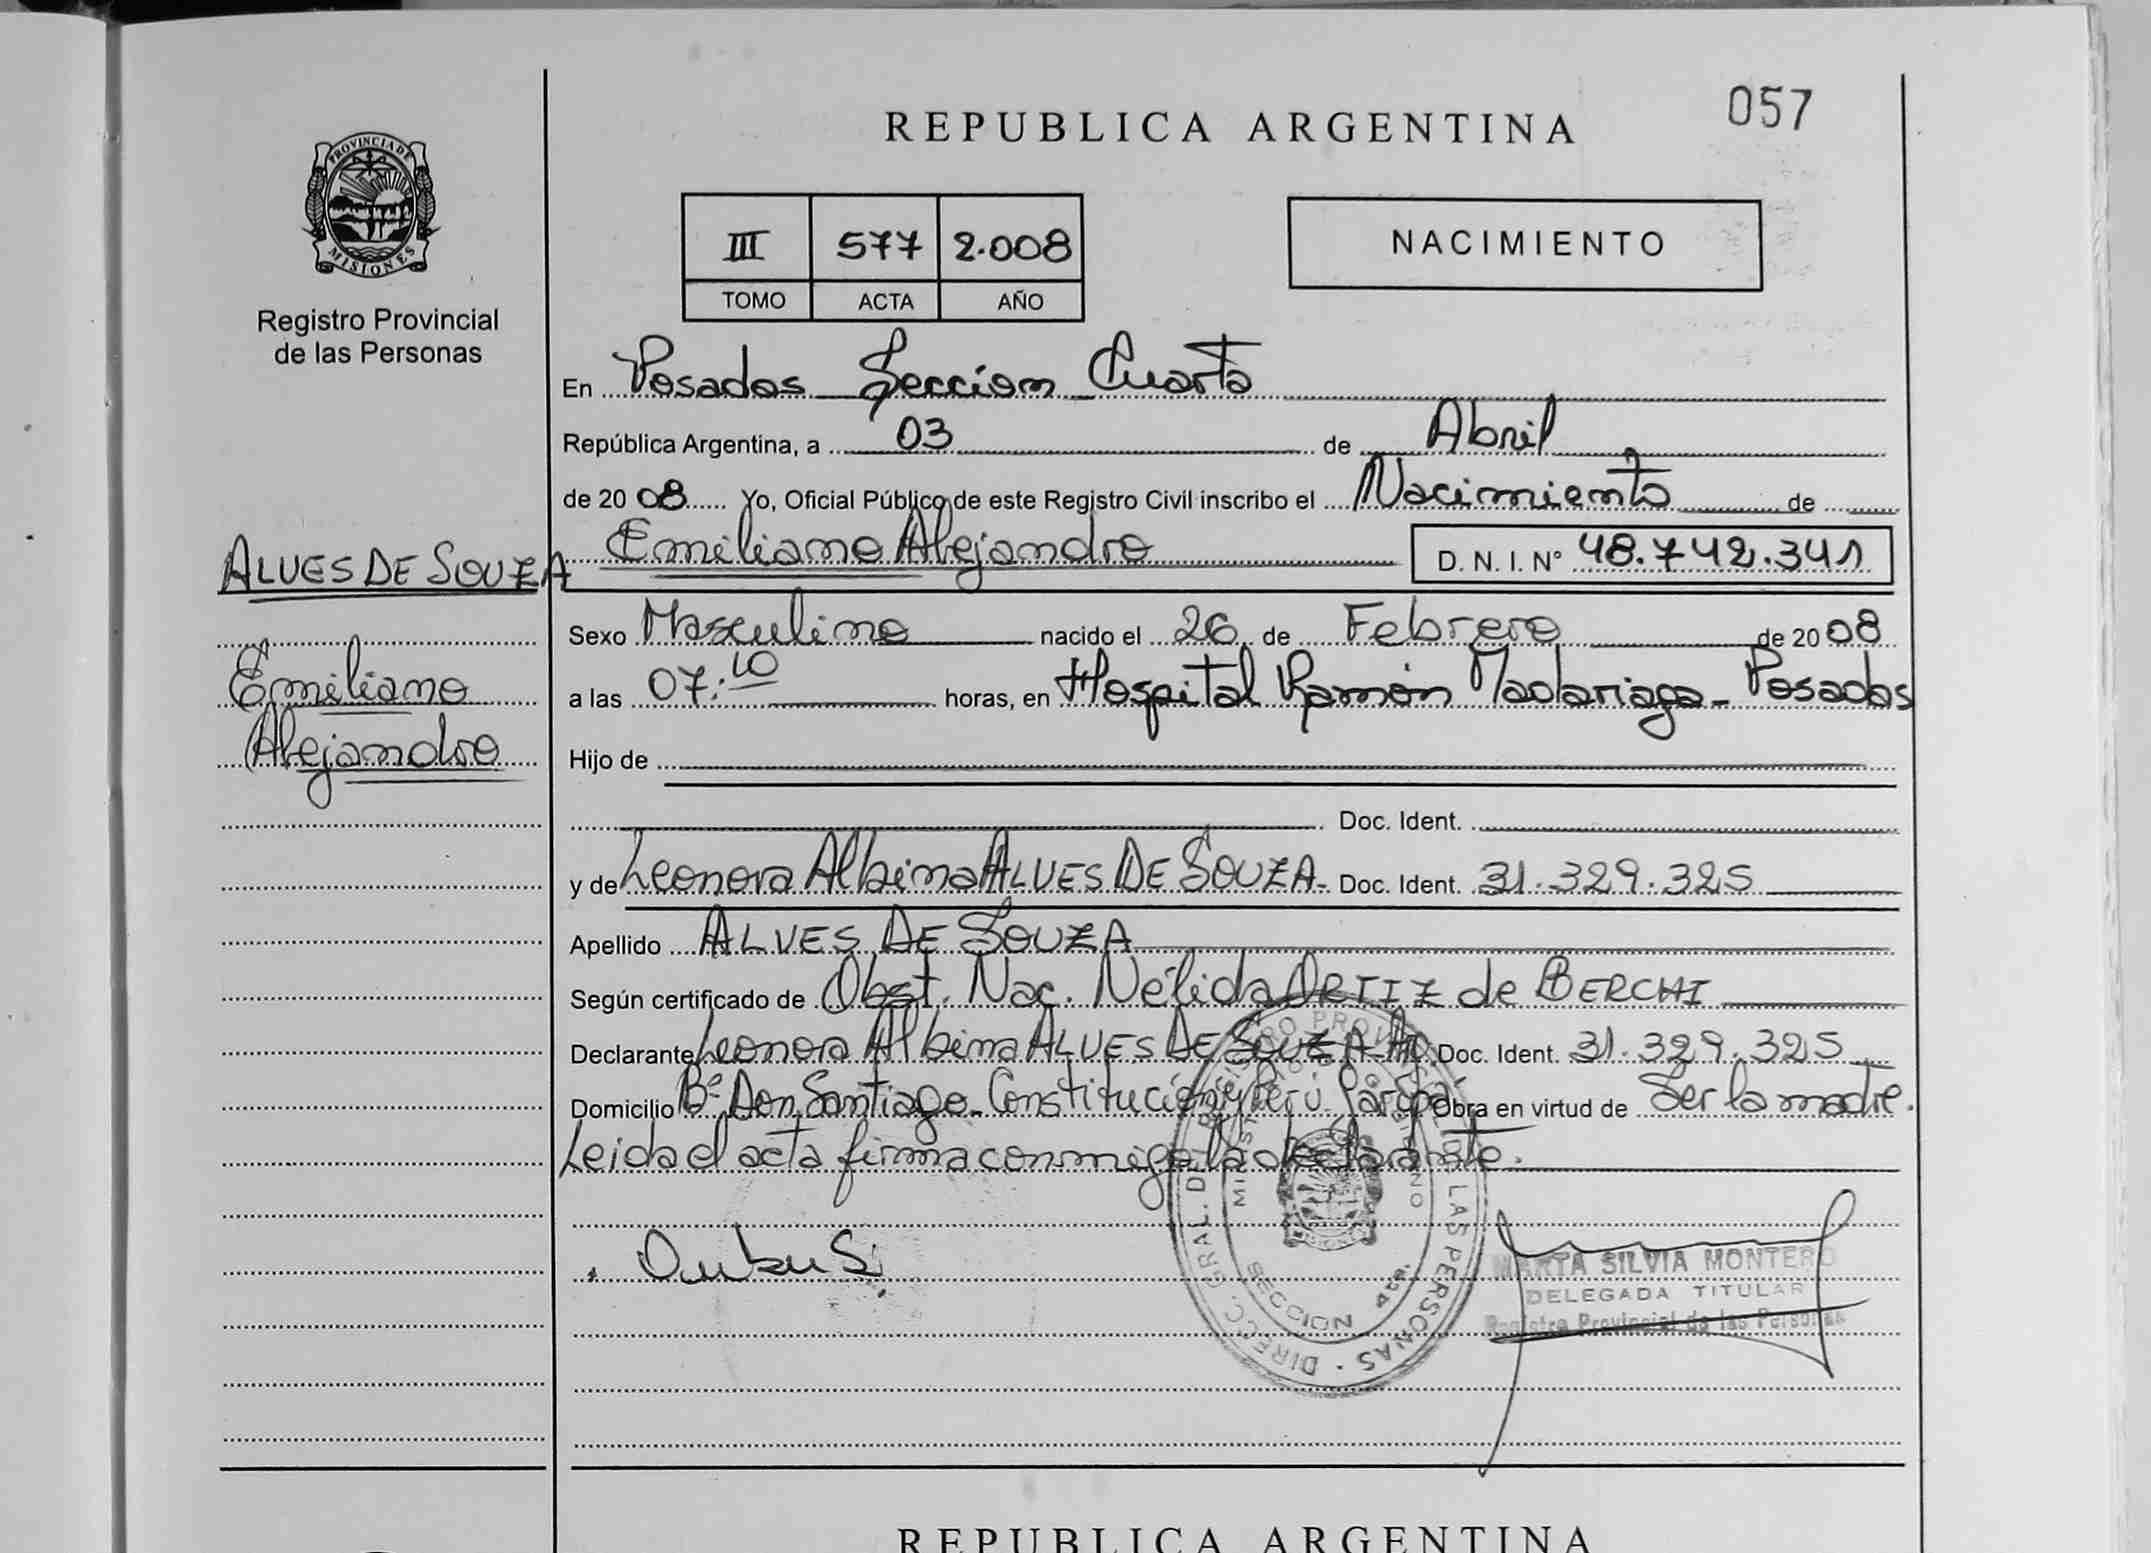 REPUBLICA ARGENTINA
057
PROVINCIA DE
MISIONES
Registro Provincial
de las Personas
III 577 2.008
TOMO ACTA AÑO
NACIMIENTO
En Posadas Seccion Cuarta
República Argentina, a 03 de Abril
de 20 08 Yo, Oficial Público de este Registro Civil inscribo el Nacimiento de
ALVES DE SOUZA
Emiliano Alejandro
D. N. I. N° 48.742.341
Sexo Masculino nacido el 26 de Febrero de 20 08
Emiliano
Alejandro
a las 07:10 horas, en Hospital Ramón Madariaga - Posadas
Hijo de
Doc. Ident.
y de Leonora Albina ALVES DE SOUZA - Doc. Ident. 31.329.325
Apellido ALVES DE SOUZA
Según certificado de Obst. Nac. Nélida ORTIZ de BERCHI
Declarante Leonora Albina ALVES DE SOUZA Doc. Ident. 31.329.325
Domicilio B° Don Santiago - Constitución y Perú Obra en virtud de Ser la madre.
Leida el acta firma conmigo la declarante.
DIREC. GRAL. DEL REGISTRO PROVINCIAL DE LAS PERSONAS
SECCION 4ta.
MARTA SILVIA MONTERO
DELEGADA TITULAR
Registro Provincial de las Personas
REPUBLICA ARGENTINA